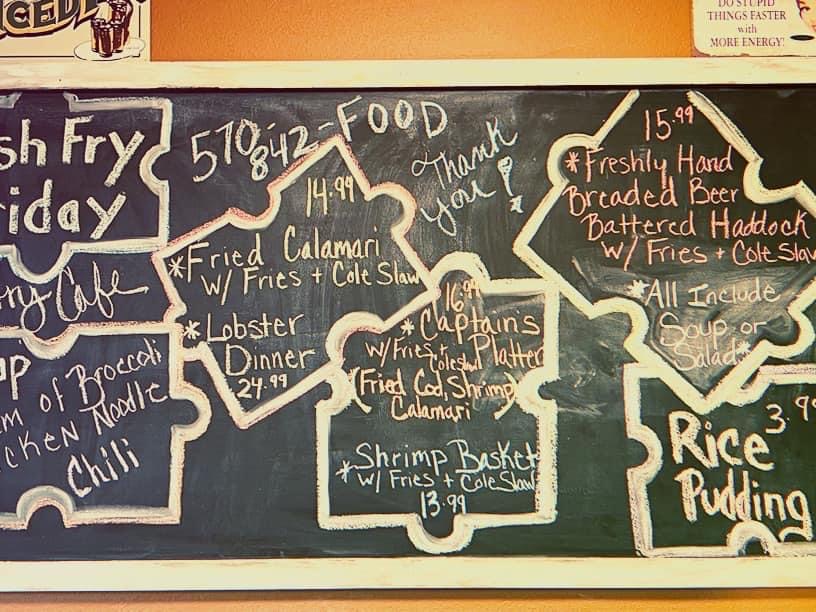 ICED
DO STUPID
THINGS FASTER
with
MORE ENERGY!
sh Fry
riday
ry Cafe
p
m of Broccoli
cken Noodle
Chili
570-842-FOOD
Thank
you!
14.99
*Fried Calamari
w/ Fries + Cole Slaw
*Lobster
Dinner
24.99
16.99
*Captains
Platter
w/Fries +
Coleslaw
(Fried Cod, Shrimp,
Calamari)
*Shrimp Basket
w/ Fries + Cole Slaw
13.99
15.99
*Freshly Hand
Breaded Beer
Battered Haddock
w/ Fries + Cole Slaw
*All Include
Soup or
Salad*
3.99
Rice
Pudding